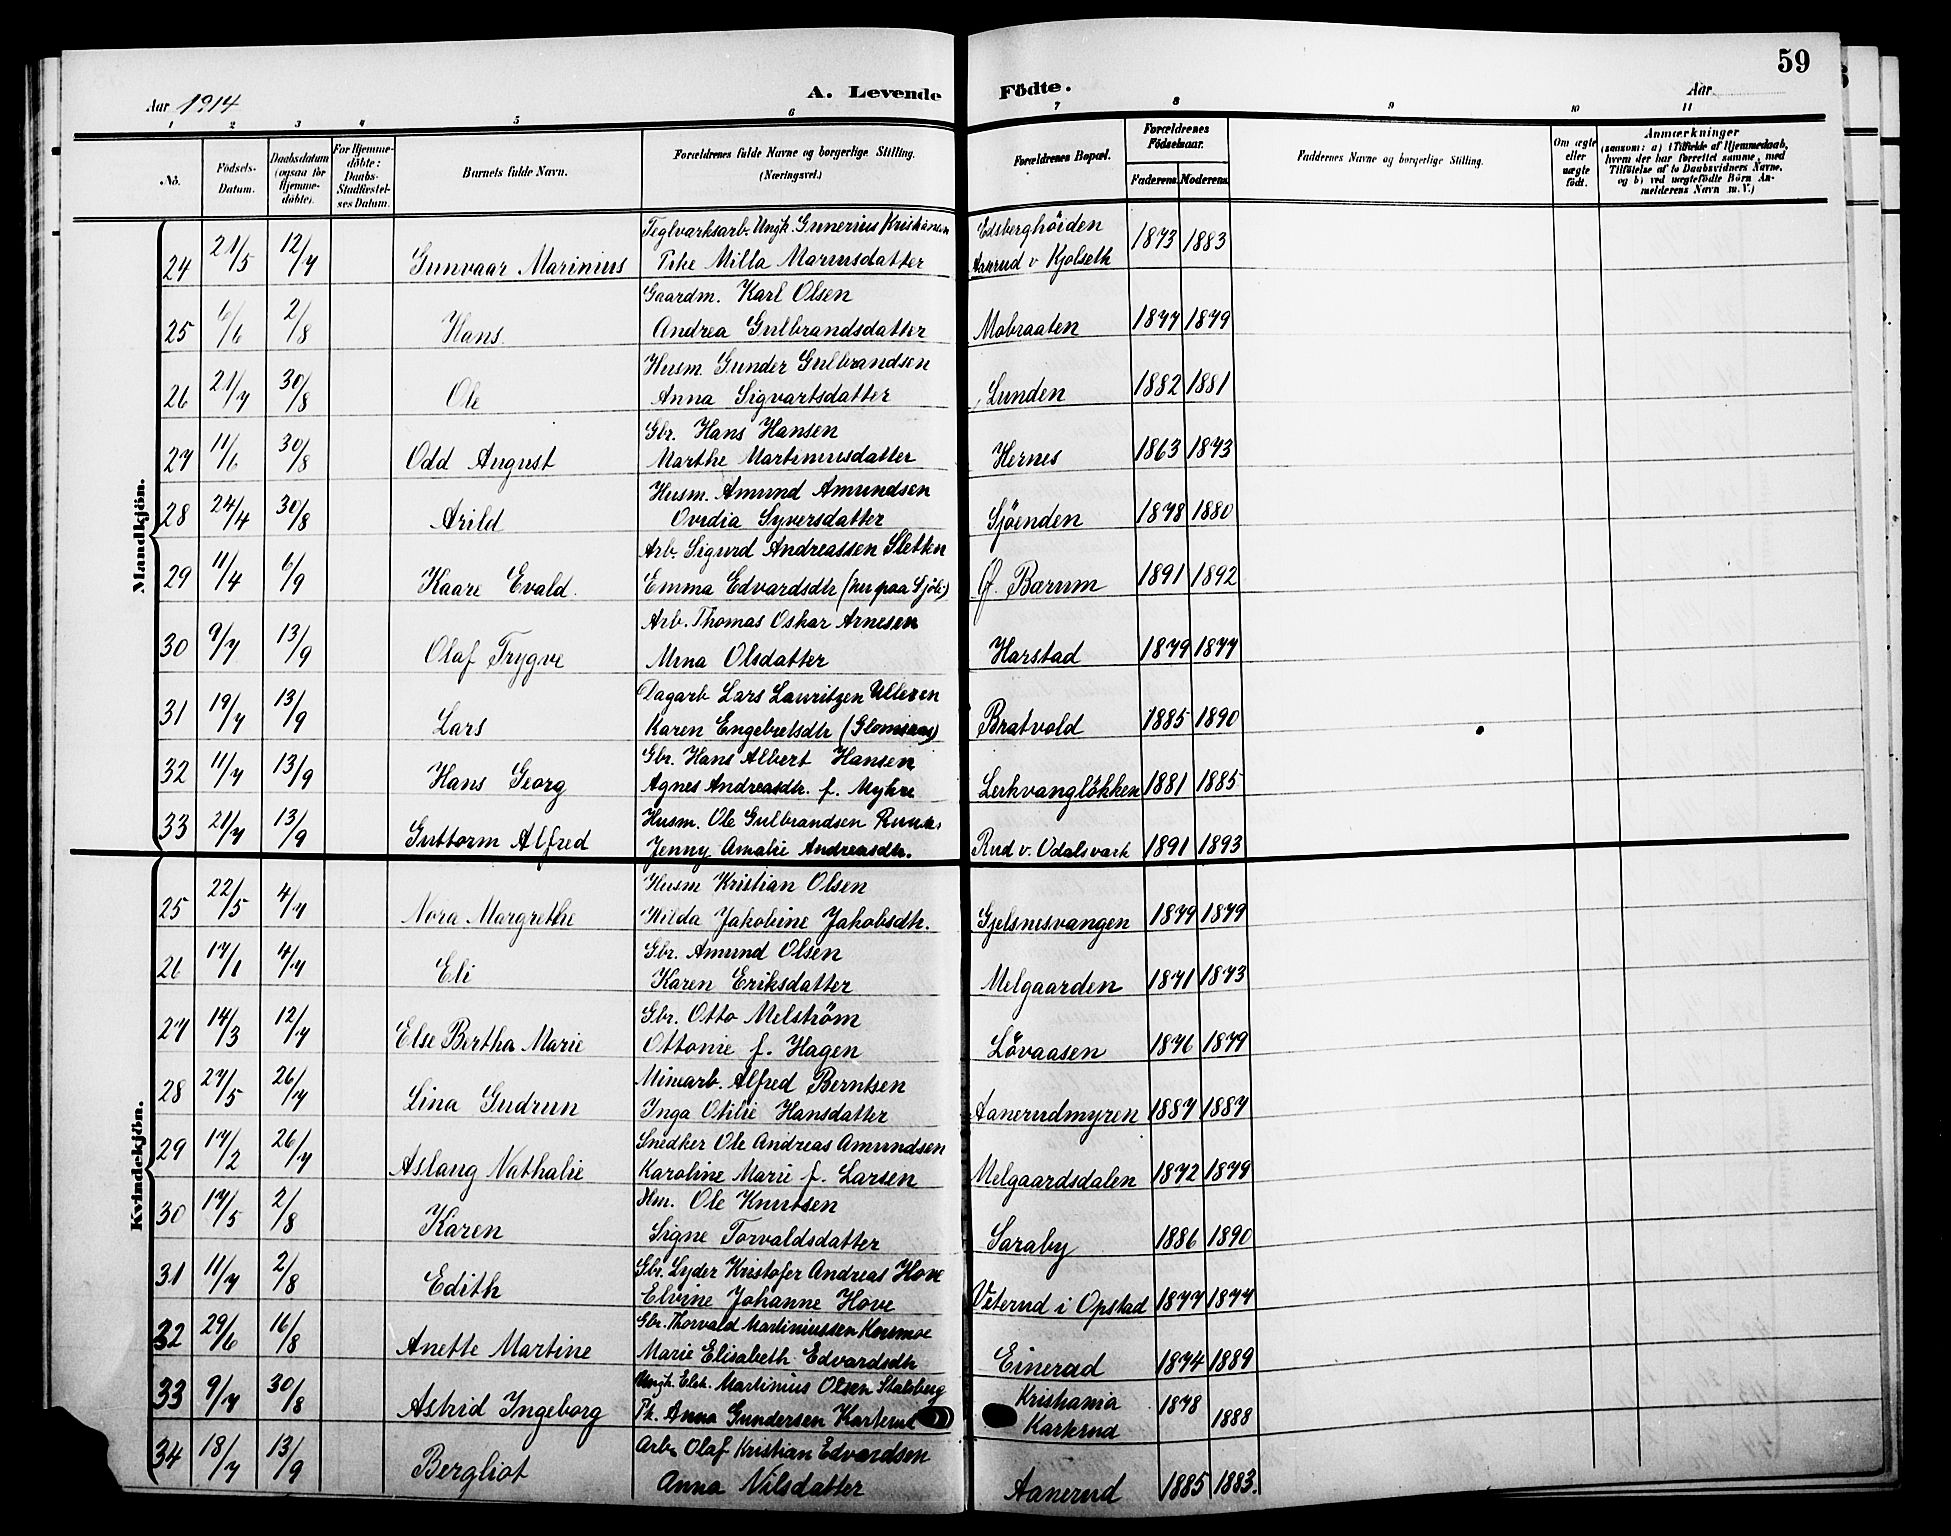 59
Aar 1914
A. Levende
Födte.
Aar
1 2 3 4 5 6 7 8 9 10 11
No.
Födsels-Datum.
Daabsdatum (ogsaa for Hjemmedöbte).
For Hjemmedöbte: Daabs-Stadfestelses Datum.
Barnets fulde Navn.
Forældrenes fulde Navne og borgerlige Stilling. (Næringsvei.)
Forældrenes Bopæl.
Forældrenes Födselsaar.
Faderens. Moderens.
Faddernes Navne og borgerlige Stilling.
Om ægte eller uægte födt.
Anmærkninger
(saasom: a) i Tilfælde af Hjemmedaab, hvem der har forrettet samme, med Tilföielse af to Daabsvidners Navne, og b) ved uægtefödte Börn Anmelderens Navn m. V.)
Mandkjön.
Teglvarksarb. Ungk. Gunerius Kristiansen Edsberghöiden
24 21/5 12/7 Gunvaar Marinius Pike Milla Mariusdatter Aanrud v Kjolseth 1873 1883
Gaardm. Karl Olsen
25 6/6 2/8 Hans Andrea Gulbrandsdatter Mobraaten 1877 1879
Husm. Gunder Gulbrandsen
26 21/7 30/8 Ole Anna Sigvartsdatter Lunden 1882 1881
Gbr. Hans Hansen
27 11/6 30/8 Odd August Marthe Martiniusdatter Hernes 1863 1873
Husm. Amund Amundsen
28 24/4 30/8 Arild Ovidia Syversdatter Sjöenden 1878 1880
Arb. Sigurd Andreassen Sletten
29 11/4 6/9 Kaare Evald. Emma Edvardsdtr (her paa Sjöli) Barum 1891 1892
Arb. Thomas Oskar Arnesen
30 9/7 13/9 Olaf Trygve Mina Olsdatter Harstad 1879 1877
Dagarb Lars Lauritzen Ulleren
31 19/7 13/9 Lars Karen Engebretsdtr (Glomsaas) Bratvold 1885 1890
Gbr. Hans Albert Hansen
32 11/7 13/9 Hans Georg Agnes Andreasdtr. f. Myhre Lerkvanglökken 1881 1885
Husm. Ole Gulbrandsen
33 21/7 13/9 Guttorm Alfred Jenny Amalie Andreasdtr. Rud v. Odalsvark 1891 1893
Kvindekjön.
Husm Kristian Olsen
25 22/5 4/7 Nora Margrethe Hilda Jakobine Jakobsdtr. Gjelsnesvangen 1879 1879
Gbr. Amund Olsen
26 17/1 4/7 Eli Karen Eriksdatter Melgaarden 1871 1873
Gbr. Otto Melström
27 14/3 12/7 Else Bertha Marie Ottonie f. Hagen Lövaasen 1876 1879
Minarb. Alfred Berntsen
28 27/5 26/7 Lina Gudrun Inga Otilie Hansdatter Aanerudmyren 1887 1887
Snedker Ole Andreas Amundsen
29 17/2 26/7 Aslaug Nathalie Karoline Marie f. Larsen Melgaardsdalen 1872 1879
Hm. Ole Knutsen
30 17/5 2/8 Karen Signe Torvaldsdatter Saraby 1886 1890
Gbr. Lyder Kristofer Andreas Hove
31 11/7 2/8 Edith Elvine Johanne Hove Veterud i Opstad 1877 1877
Gbr. Thorvald Martiniussen Kornmoe
32 29/6 16/8 Anette Martine Marie Elisabeth Edvardsdtr Einerud 1874 1889
Ungk. Elek. Martinius Olsen Stalsberg Kristiania 1878
33 9/7 30/8 Astrid Ingeborg Pk. Anna Gundersen Karterud Karterud 1888
Arb. Olaf Kristian Edvardsen
34 18/7 13/9 Bergliot Anna Nilsdatter Aanerud 1885 1883.